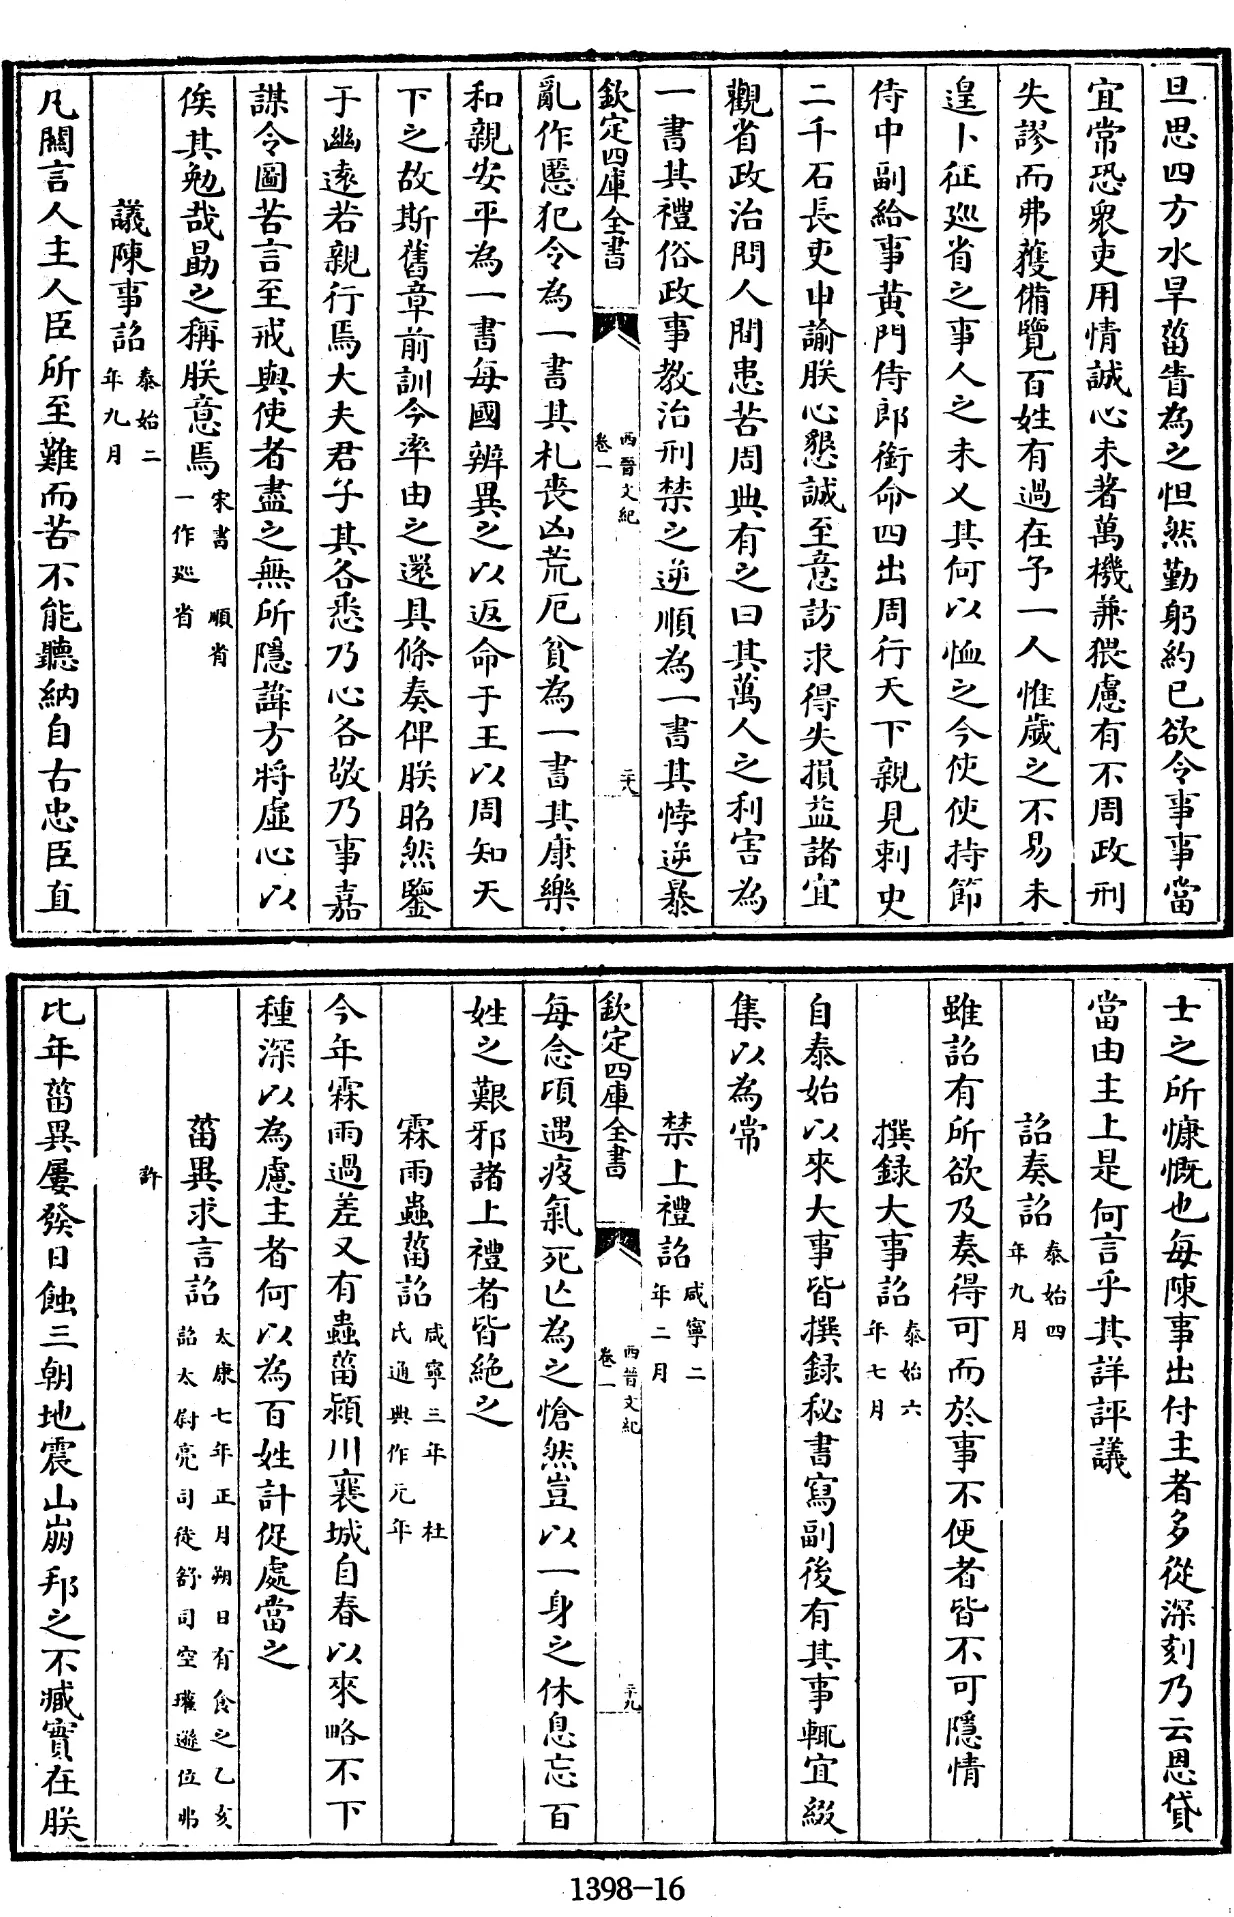 旦思四方水旱菑眚為之怛然勤躬約已欲令事事當
宜常恐衆吏用情誠心未著萬機兼猥慮有不周政刑
失謬而弗獲備覽百姓有過在予一人惟歲之不易未
遑卜征廵省之事人之未乂其何以恤之今使使持節
侍中副給事黄門侍郎銜命四出周行天下親見刺史
二千石長吏申諭朕心懇誠至意訪求得失損益諸宜
觀省政治問人間患苦周典有之曰其萬人之利害為
一書其禮俗政事教治刑禁之逆順為一書其悖逆暴
欽定四庫全書
西晉文紀
卷一
二十八
亂作慝犯令為一書其札喪凶荒厄貧為一書其康樂
和親安平為一書每國辨異之以返命于王以周知天
下之故斯舊章前訓今率由之還具條奏俾朕昭然鑒
于幽逺若親行焉大夫君子其各悉乃心各敬乃事嘉
謀令圖苦言至戒與使者盡之無所隱諱方將虛心以
俟其勉哉勗之稱朕意焉宋書順省
一作廵省
議陳事詔泰始二
年九月
凡關言人主人臣所至難而苦不能聽納自古忠臣直
士之所慷慨也每陳事出付主者多從深刻乃云恩貸
當由主上是何言乎其詳評議
詔奏詔泰始四
年九月
雖詔有所欲及奏得可而於事不便者皆不可隱情
撰録大事詔泰始六
年七月
自泰始以來大事皆撰録秘書寫副後有其事輒宜綴
集以為常
禁上禮詔咸寧二
年二月
欽定四庫全書
西晉文紀
卷一
二十九
每念頃遇疫氣死亡為之愴然豈以一身之休息忘百
姓之艱邪諸上禮者皆絶之
霖雨蟲菑詔咸寧三年杜
氏通典作元年
今年霖雨過差又有蟲菑潁川襄城自春以來略不下
種深以為慮主者何以為百姓計促處當之
菑異求言詔太康七年正月朔日有食之乙亥
詔太尉亮司徒舒司空瓘遜位弗
許
比年菑異屢發日蝕三朝地震山崩邦之不臧實在朕
1398-16